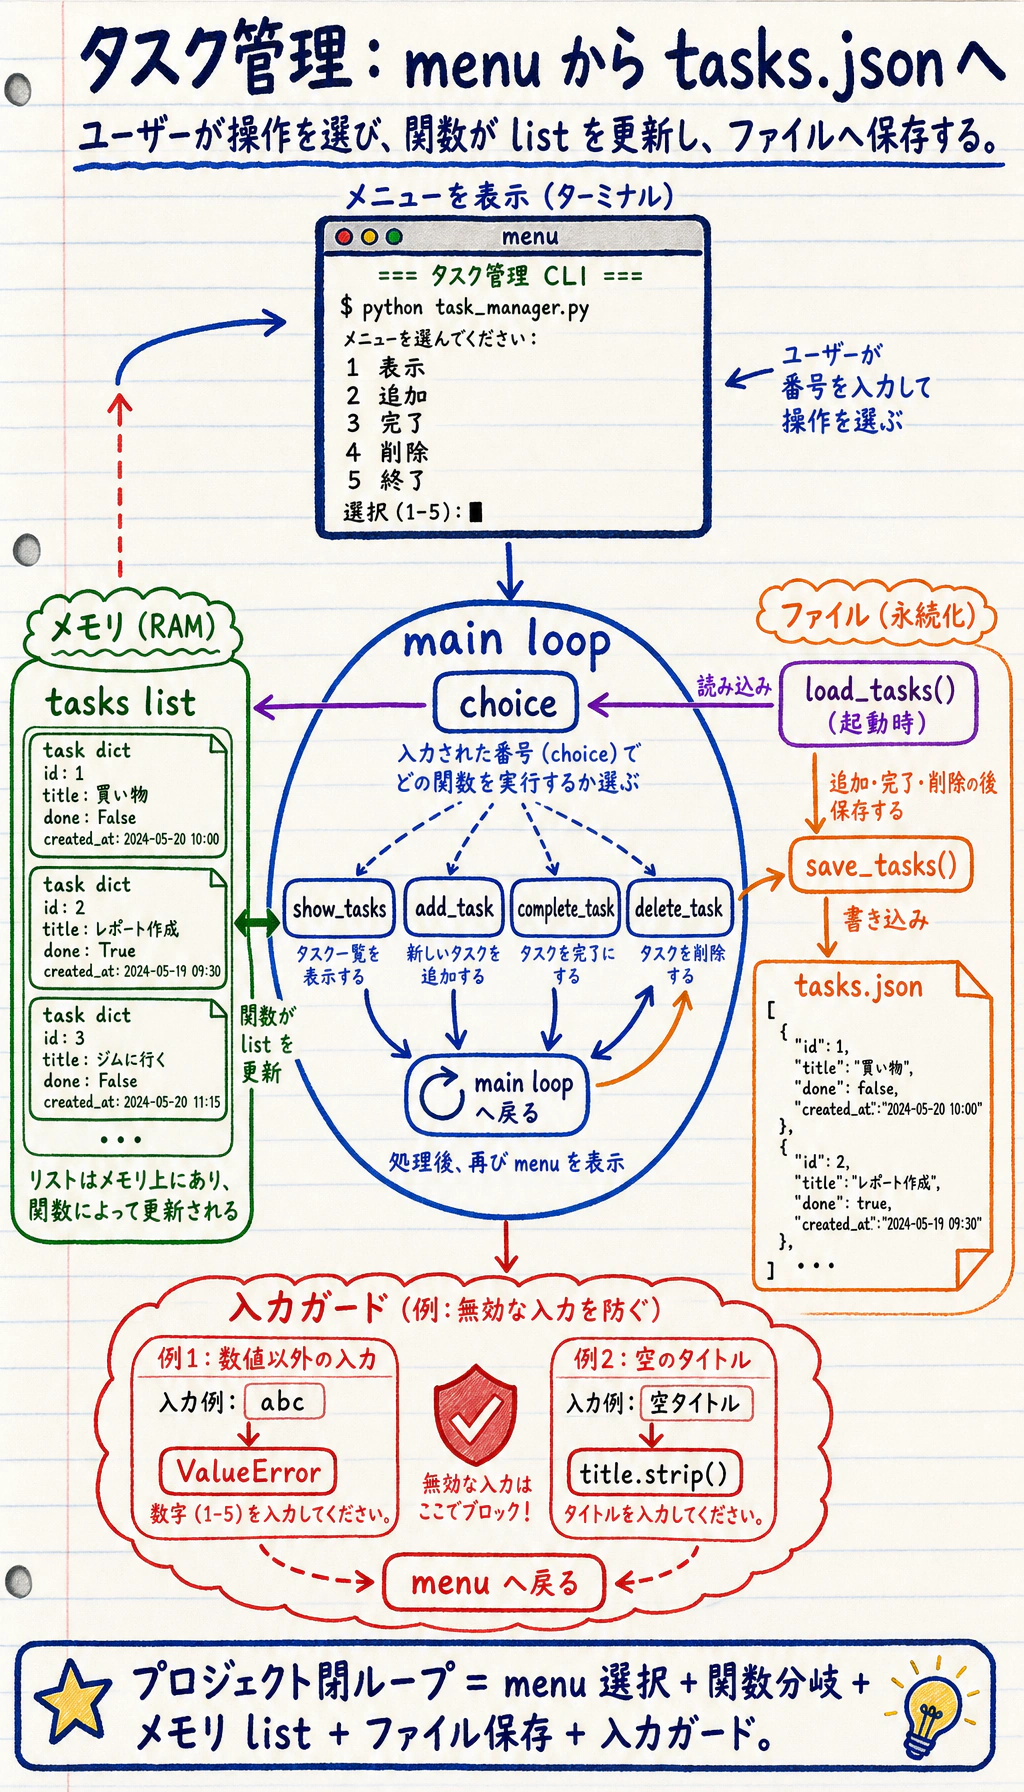 タスク管理：menu から tasks.json へ
ユーザーが操作を選び、関数が list を更新し、ファイルへ保存する。
メニューを表示（ターミナル）
menu
=== タスク管理 CLI ===
$ python task_manager.py
メニューを選んでください：
1 表示
2 追加
3 完了
4 削除
5 終了
選択 (1-5):
ユーザーが
番号を入力して
操作を選ぶ
メモリ (RAM)
tasks list
task dict
id: 1
title: 買い物
done: False
created_at: 2024-05-20 10:00
task dict
id: 2
title: レポート作成
done: True
created_at: 2024-05-19 09:30
task dict
id: 3
title: ジムに行く
done: False
created_at: 2024-05-20 11:15
•••
リストはメモリ上にあり、
関数によって更新される
関数が
list を
更新
main loop
choice
入力された番号 (choice) で
どの関数を実行するか選ぶ
show_tasks
タスク一覧を
表示する
add_task
新しいタスクを
追加する
complete_task
タスクを完了に
する
delete_task
タスクを削除
する
main loop
へ戻る
処理後、再び menu を表示
ファイル (永続化)
読み込み
load_tasks()
(起動時)
追加・完了・削除の後
保存する
save_tasks()
書き込み
tasks.json
[
{
"id": 1,
"title": "買い物",
"done": false,
"created_at": "2024-05-20 10:00"
},
{
"id": 2,
"title": "レポート作成",
"done": true,
"created_at": "2024-05-19 09:30"
},
] •••
入力ガード (例：無効な入力を防ぐ)
例1：数値以外の入力
入力例： abc
ValueError
数字 (1-5) を入力してください。
無効な入力は
ここでブロック！
例2：空のタイトル
入力例： 空タイトル
title.strip()
タイトルを入力してください。
menu へ戻る
プロジェクト閉ループ = menu 選択 + 関数分岐 +
メモリ list + ファイル保存 + 入力ガード。